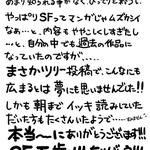 あまり知られる事がなく、ひっくりおわり、
やっぱりSFってマンガじゃムズカシイ
なぁ…と、内容もややこしくしすぎたし
…と、自分の中でも、過去の作品に
なっていたのですが、、、、
まさかツリー投稿で、こんなにも
広まるとは夢にも思いませんでした!!
しかも朝までイッキ読みしていた
だいた方もたくさんいたようで…
本当〜にありがとうございます!!!